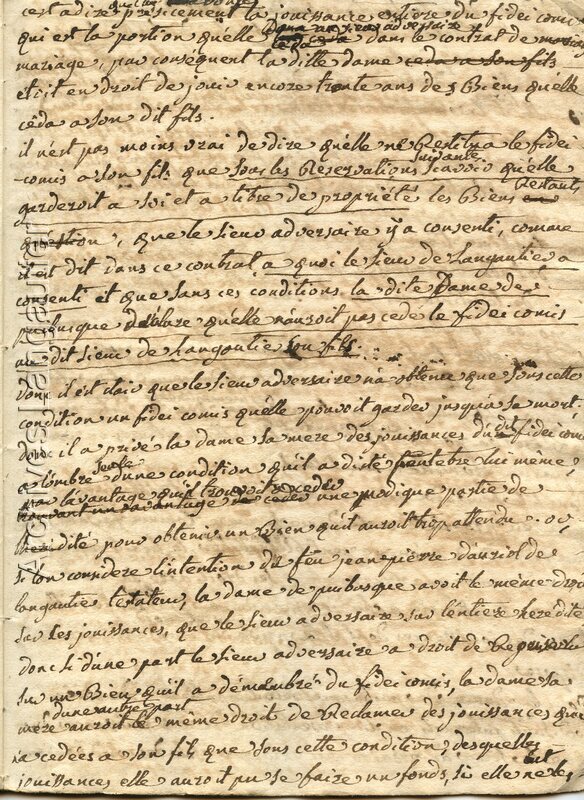 c'est adire précisement la jouissance entiere du fidei comis
qui est la portion quélle dans le contrat de
mariage, par conséquent la ditte dame ceda a son fils
etoit en droit de jouir encore trente ans des biens quélle
céda a son dit fils.
il nést pas moins vrai de dire quélle ne Restitua le fidei
comis a son fils que sous les Réservations suivantes scavoir quélle
garderoit a soi et a titre de propriété les biens Restants
question, que le sieur adversaire y a consenti, comme
il est dit dans ce contrat, a quoi le sieur de Langautie a
consenti et que sans ces conditions la dite Dame de
puibusque déclare quélle nauroit pas cede le fidei comis
au dit sieur de Langautie son fils.
donc il est clair que le sieur adversaire na obtenu que sous cette
condition un fidei comis quélle pouvoit garder jusqua sa mort.
donc il a privé la dame sa mere des jouissances du dit fidei comis
a l'ombre seule dúne condition quil a dicté lui même,
par lávantage quil trouvoit a ceder une modique partie de
heredité pour obtenir un Bien quíl auroit trop attendu. or,
si lón considere líntention du feu jean pierre dauriol de
langautie testateur, la dame de puibusque avoit le même droit
sur les jouissances, que le sieur adversaire sur léntiere heredité
donc si dúne part le sieur adversaire a droit de
sur un Bien quíl a démembré du fidei comis, la dame sa
mère dune autre part auroit le même droit de Reclamer des jouissances quélle
na cedées a son fils que sous cette condition; desquelles
jouissances elle auroit pu se faire un fonds, si elle ne les eut
Archives Langautier